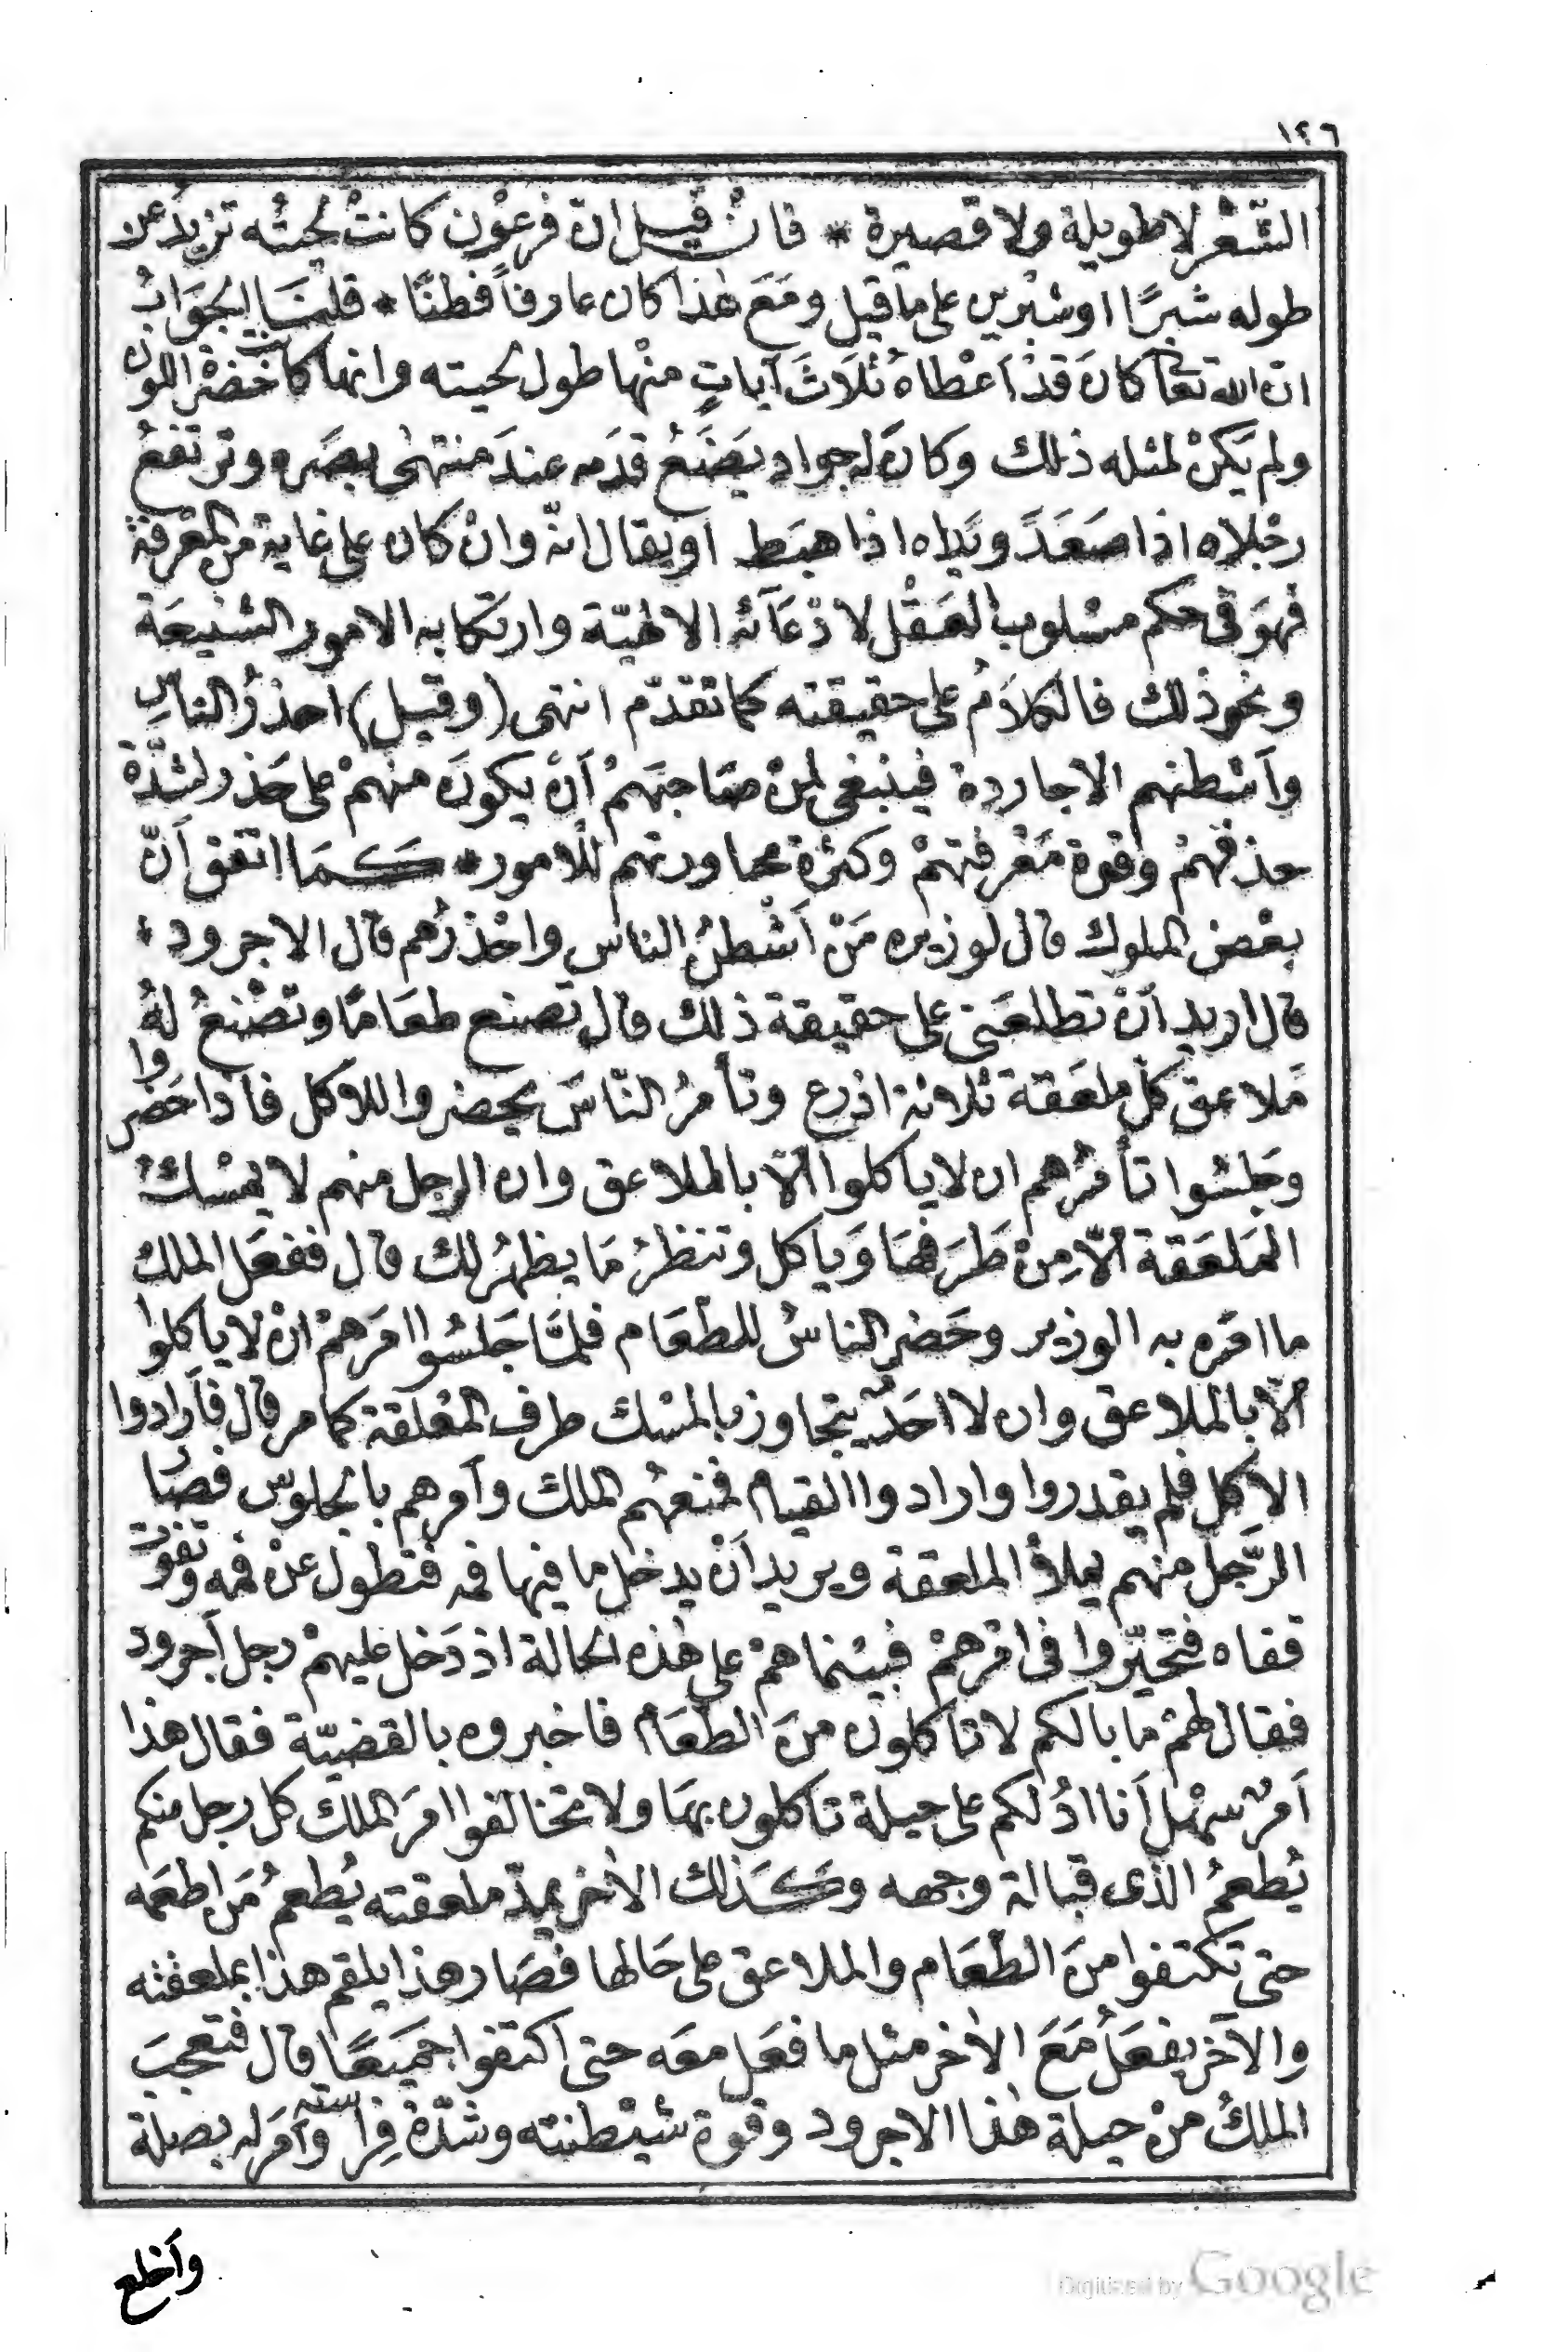 ١٤٦
الشَّعْر لا طويلة ولا قصيرة * فانْ قيل انّ فرعْون كانتْ لحيتُه تزيد على
طوله شبرًا او شبْرين على ما قيل ومَعَ هٰذا كان عارفاً فطنًا * قلنَا الجوَابُ
انّ الله تعَالى كانَ قدْ اَعْطاهُ ثلَاثَ آياتٍ منْها طول لحيته وانها كانت خضْر اللون
ولم يَكنْ لمثله ذلك وكانَ له جواد يَضَعُ قدَمه عندَ منتهٰى بصَره وترتفعُ
رجْلاه اذا صَعَدَ ويَداه اذا هبَط اويقال انّه وانْ كان على غاية من المعْرفة
فهوَ فى حكم مسْلوب العَقْل لادّعَآئه الالٰهيّة وارتكابه الامور الشنيعَة
ونحو ذلك فالكلاَمُ على حقيقته كما تقدّم انتهى (وقيل) احذرُ الناسِ
وآشطنهم الاجاردة فينبغى لمنْ صَاحبَهمْ اَنْ يكونَ منهمْ على حَذر لشدَّة
حذقهمْ وقوة مَعْرفتهمْ وكثرة محاورتهم للامور * كَمَا اتفق اَنّ
بعْض الملوك قال لوزيره مَنْ اَشْطنُ الناس واحْذرُهم قال الاجرود *
قال اريد اَنْ تطلعَنى على حقيقة ذلك قال تصنع طعَامًا وتصْنعُ لهُ
مَلاعق كلّ ملعَقة ثلاثة اذرع وتأمرُ النّاسَ يحضروا للاكل فاذا حَضروا
وجَلسُوا تأمُرهم ان لا يأكلوا الاّ بالملاعق وان الرجل منهم لا يمْسكُ
المَلعَقة الاّ مِنْ طَرَفهَا وَياكل وتنظرُ مَا يظهرُ لك قال ففعَل الملك
ما امَره به الوزير وحَضر الناسُ للطّعَام فلمَّا جَلسُوا امَرَهمْ انْ لا ياكلوا
الاّ بالملاعق وان لا احَدٌ يتجاوز بالمسْك طرف المعْلقة كما مر قال فأرادوا
الاكل فلم يقدروا وارادوا القيام فمنعهُم الملك وآمرهم بالجلوس فصَار
الرَّجل منهم يملأُ الملعقة ويريد اَنْ يدخل ما فيها فمه فتطول عنْ فمه وتفوْت
قفاه فتحيّروا فى امْرهمْ فبيْنما همْ على هٰذه الحالة اذ دَخل عليهمْ رجل اَجرود
فقال لهمْ مَا بالكم لا تأكلونَ منَ الطعَام فاخبروه بالقضيّة فقال هذا
اَمرٌ سهْل اَنا ادُلكم على حيلة تاكلون بهَا ولا تخالفوا امرَ الملك كل رجل منكم
يُطعمُ الذى قبالة وجهه وكَذلك الاٰخر يمدّ ملعقته يُطعمُ مَن اطعمَه
حتى تكتفوا منَ الطّعَام والملاعق على حَالها فصَار هذا يلقم هذا بملعقته
والآخر يفعَلُ مَعَ الاٰخر مثل ما فعَل معَه حتى اكتفوا جَميعًا قال فتعجبَ
الملكُ منْ حيلة هٰذا الاجرود وقوّة شيْطنته وشدّة فِراسته وآمَر له بصلة
وآخلع
Digitized by Google